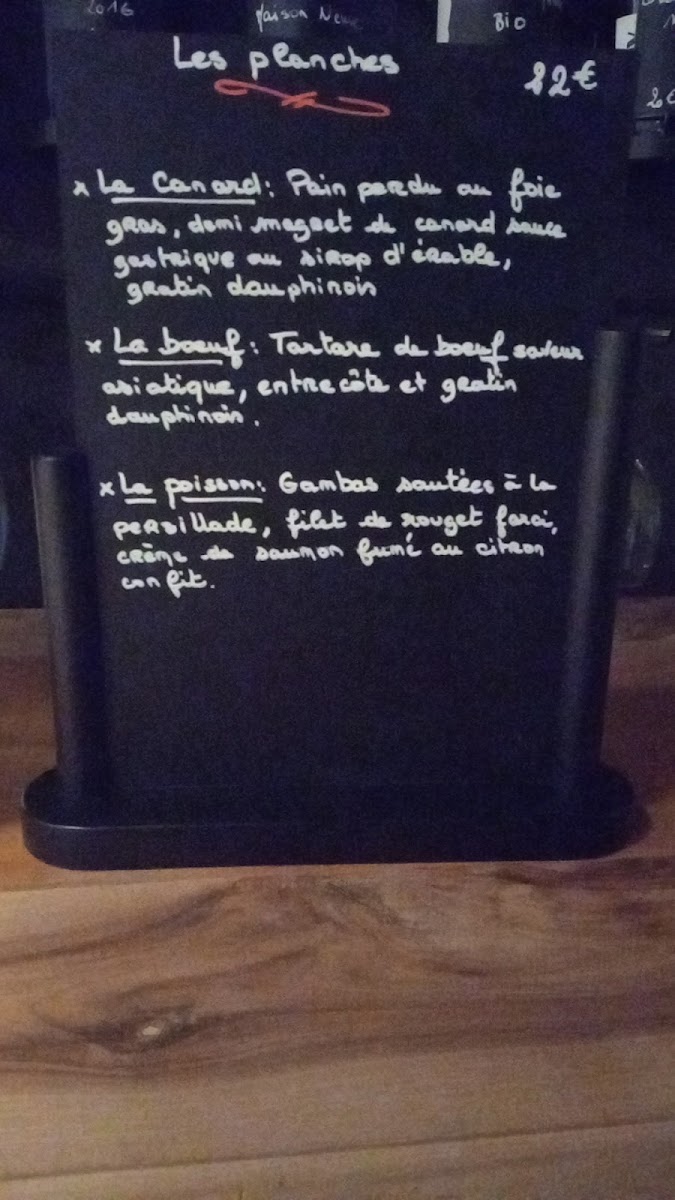 2016
Maison Neuve
BIO
Les planches
22€
x La Canard: Pain perdu au foie
gras, demi magret de canard sauce
gastrique au sirop d'érable,
gratin dauphinois
x La boeuf: Tartare de boeuf saveur
asiatique, entrecôte et gratin
dauphinois.
x La poisson: Gambas sautées à la
persillade, filet de rouget farci,
crème de saumon fumé au citron
confit.